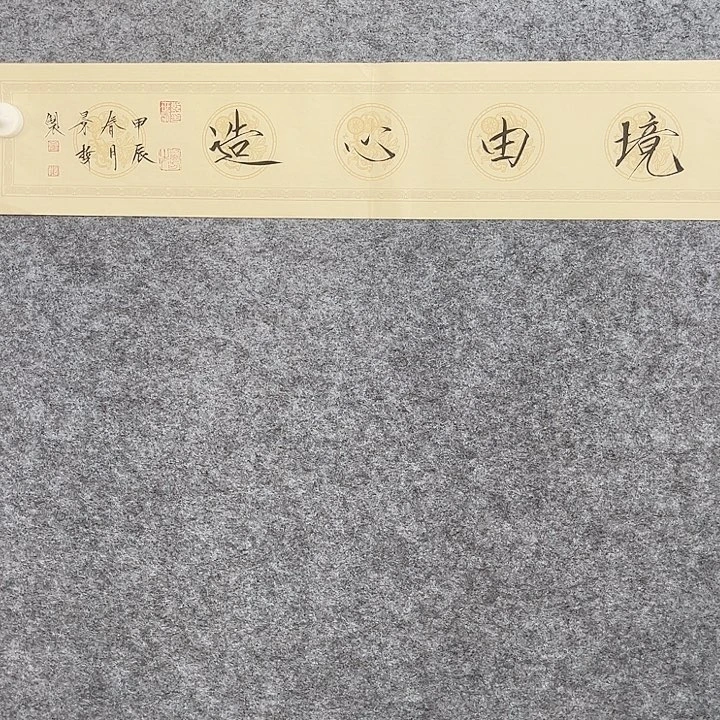 境由心造
甲辰
春月